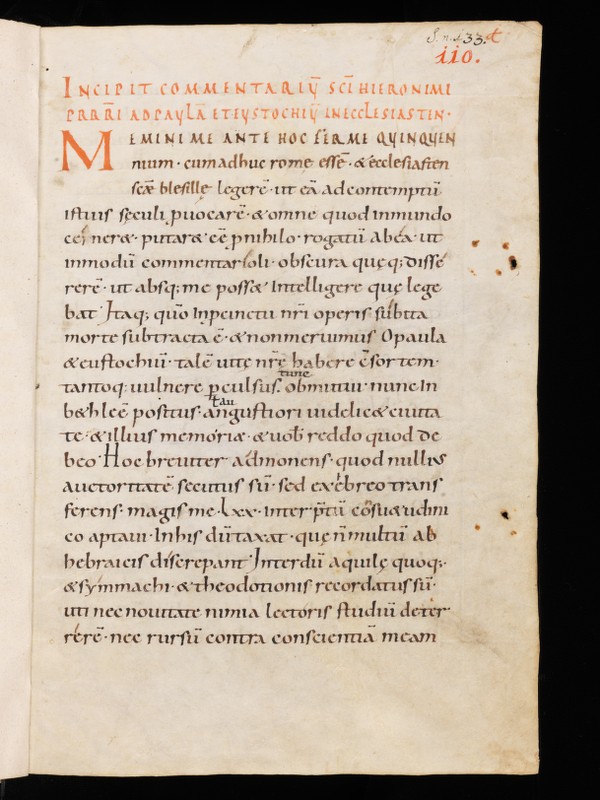 S. n. 133. ct
110.
INCIPIT COMMENTARIŪ SCĪ HIERONIMI
PRBRI AD PAULĀ ET EUSTOCHIŪ IN ECCLESIASTIN·
MEMINI ME ANTE HOC FERME QUINQUEN
nium · cum adhuc rome essē · & ecclesiasten
scæ blesille legerē · ut eā ad contemptū
istius sęculi ꝓuocarē · & omne quod in mundo
cerner& · putar& eē ꝓ nihilo · rogatū ab ea · ut
in modū commentarioli · obscura quęq; disse
rerē · ut absq; me poss& Intelligere quę lege
bat Itaq; qūo In pcinctu nrī operis subita
morte subtracta ē · & non meruimus O paula
& eustochiū · talē uitę nrę habere c̄sortem ·
tantoq; uulnere ꝑculsus · obmutui · nunc In
tunc
b&hleē positus · angustiori uidelic& ciuita
tau
te · & illius memoriæ · & uob̄ reddo quod de
beo Hoc breuiter admonens · quod nullius
auctoritatē secutus sū · sed ex ebreo trans
ferens · magis me · lxx · interp̄tū c̄osu&udini
co aptaui · In his dūtaxat · quę n̄ multū ab
hebraicis discrepant Interdū aquilę quoq;·
& symmachi · & theodotionis recordatus sū·
uti nec nouitate nimia lectoris studiū deter
rerē · nec rursū contra conscientiā meam